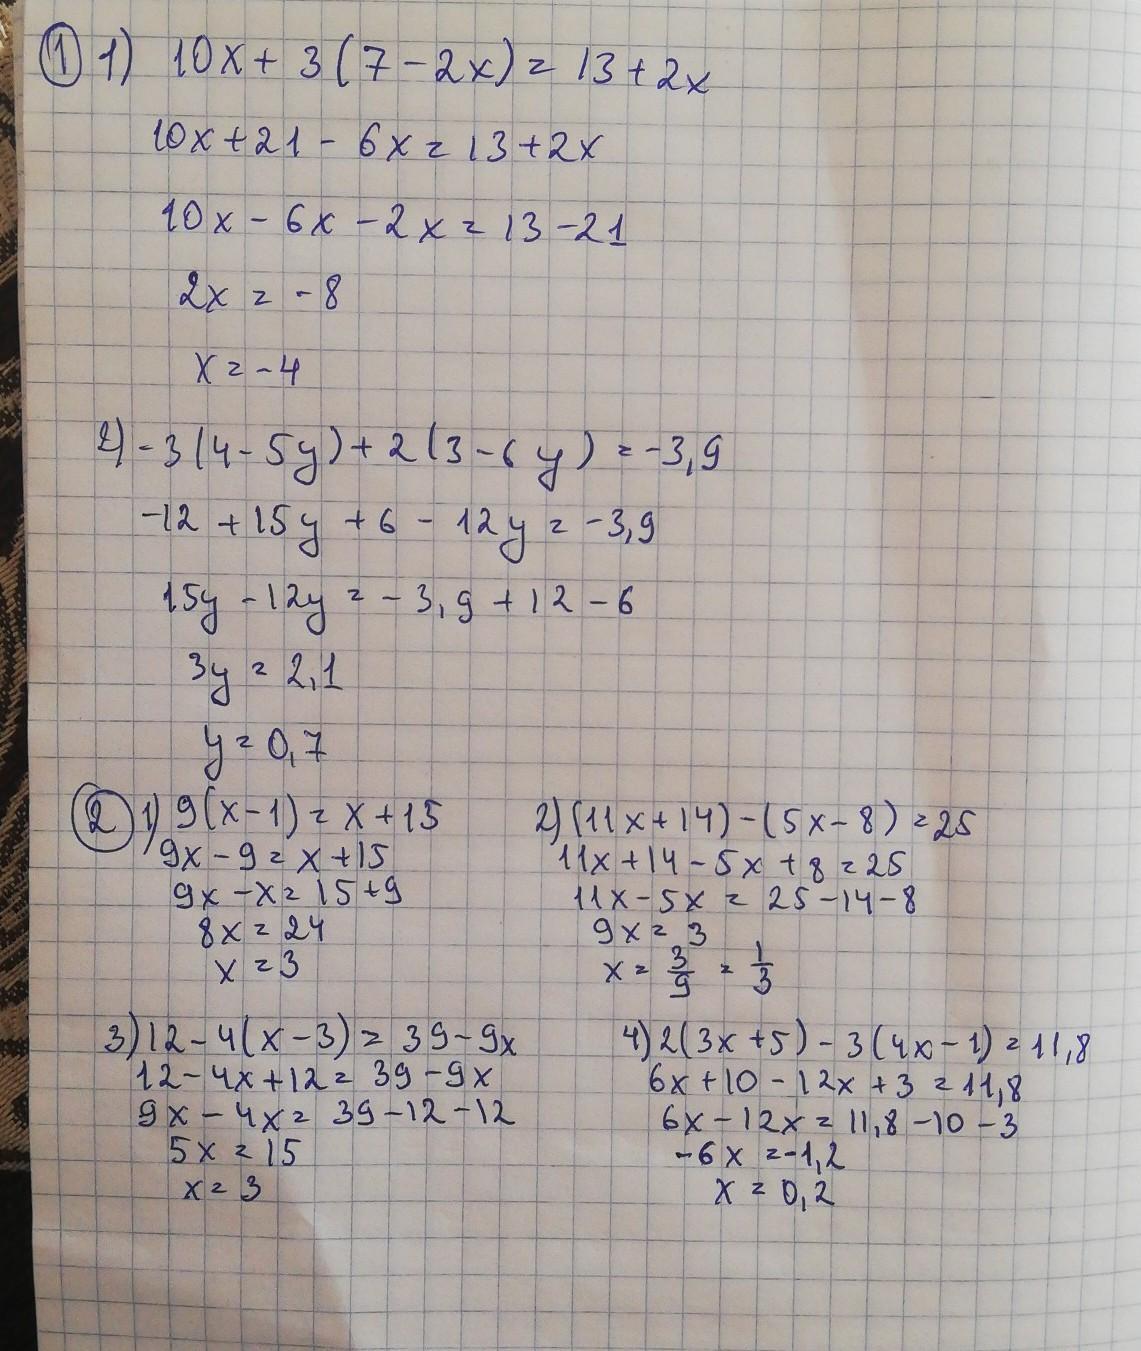 ① 1) 10x + 3(7 - 2x) = 13 + 2x
10x + 21 - 6x = 13 + 2x
10x - 6x - 2x = 13 - 21
2x = -8
x = -4
2) -3(4 - 5y) + 2(3 - 6y) = -3,9
-12 + 15y + 6 - 12y = -3,9
15y - 12y = -3,9 + 12 - 6
3y = 2,1
y = 0,7
② 1) 9(x - 1) = x + 15
9x - 9 = x + 15
9x - x = 15 + 9
8x = 24
x = 3
2) (11x + 14) - (5x - 8) = 25
11x + 14 - 5x + 8 = 25
11x - 5x = 25 - 14 - 8
9x = 3
x = 3/9 = 1/3
3) 12 - 4(x - 3) = 39 - 9x
12 - 4x + 12 = 39 - 9x
9x - 4x = 39 - 12 - 12
5x = 15
x = 3
4) 2(3x + 5) - 3(4x - 1) = 11,8
6x + 10 - 12x + 3 = 11,8
6x - 12x = 11,8 - 10 - 3
-6x = -1,2
x = 0,2